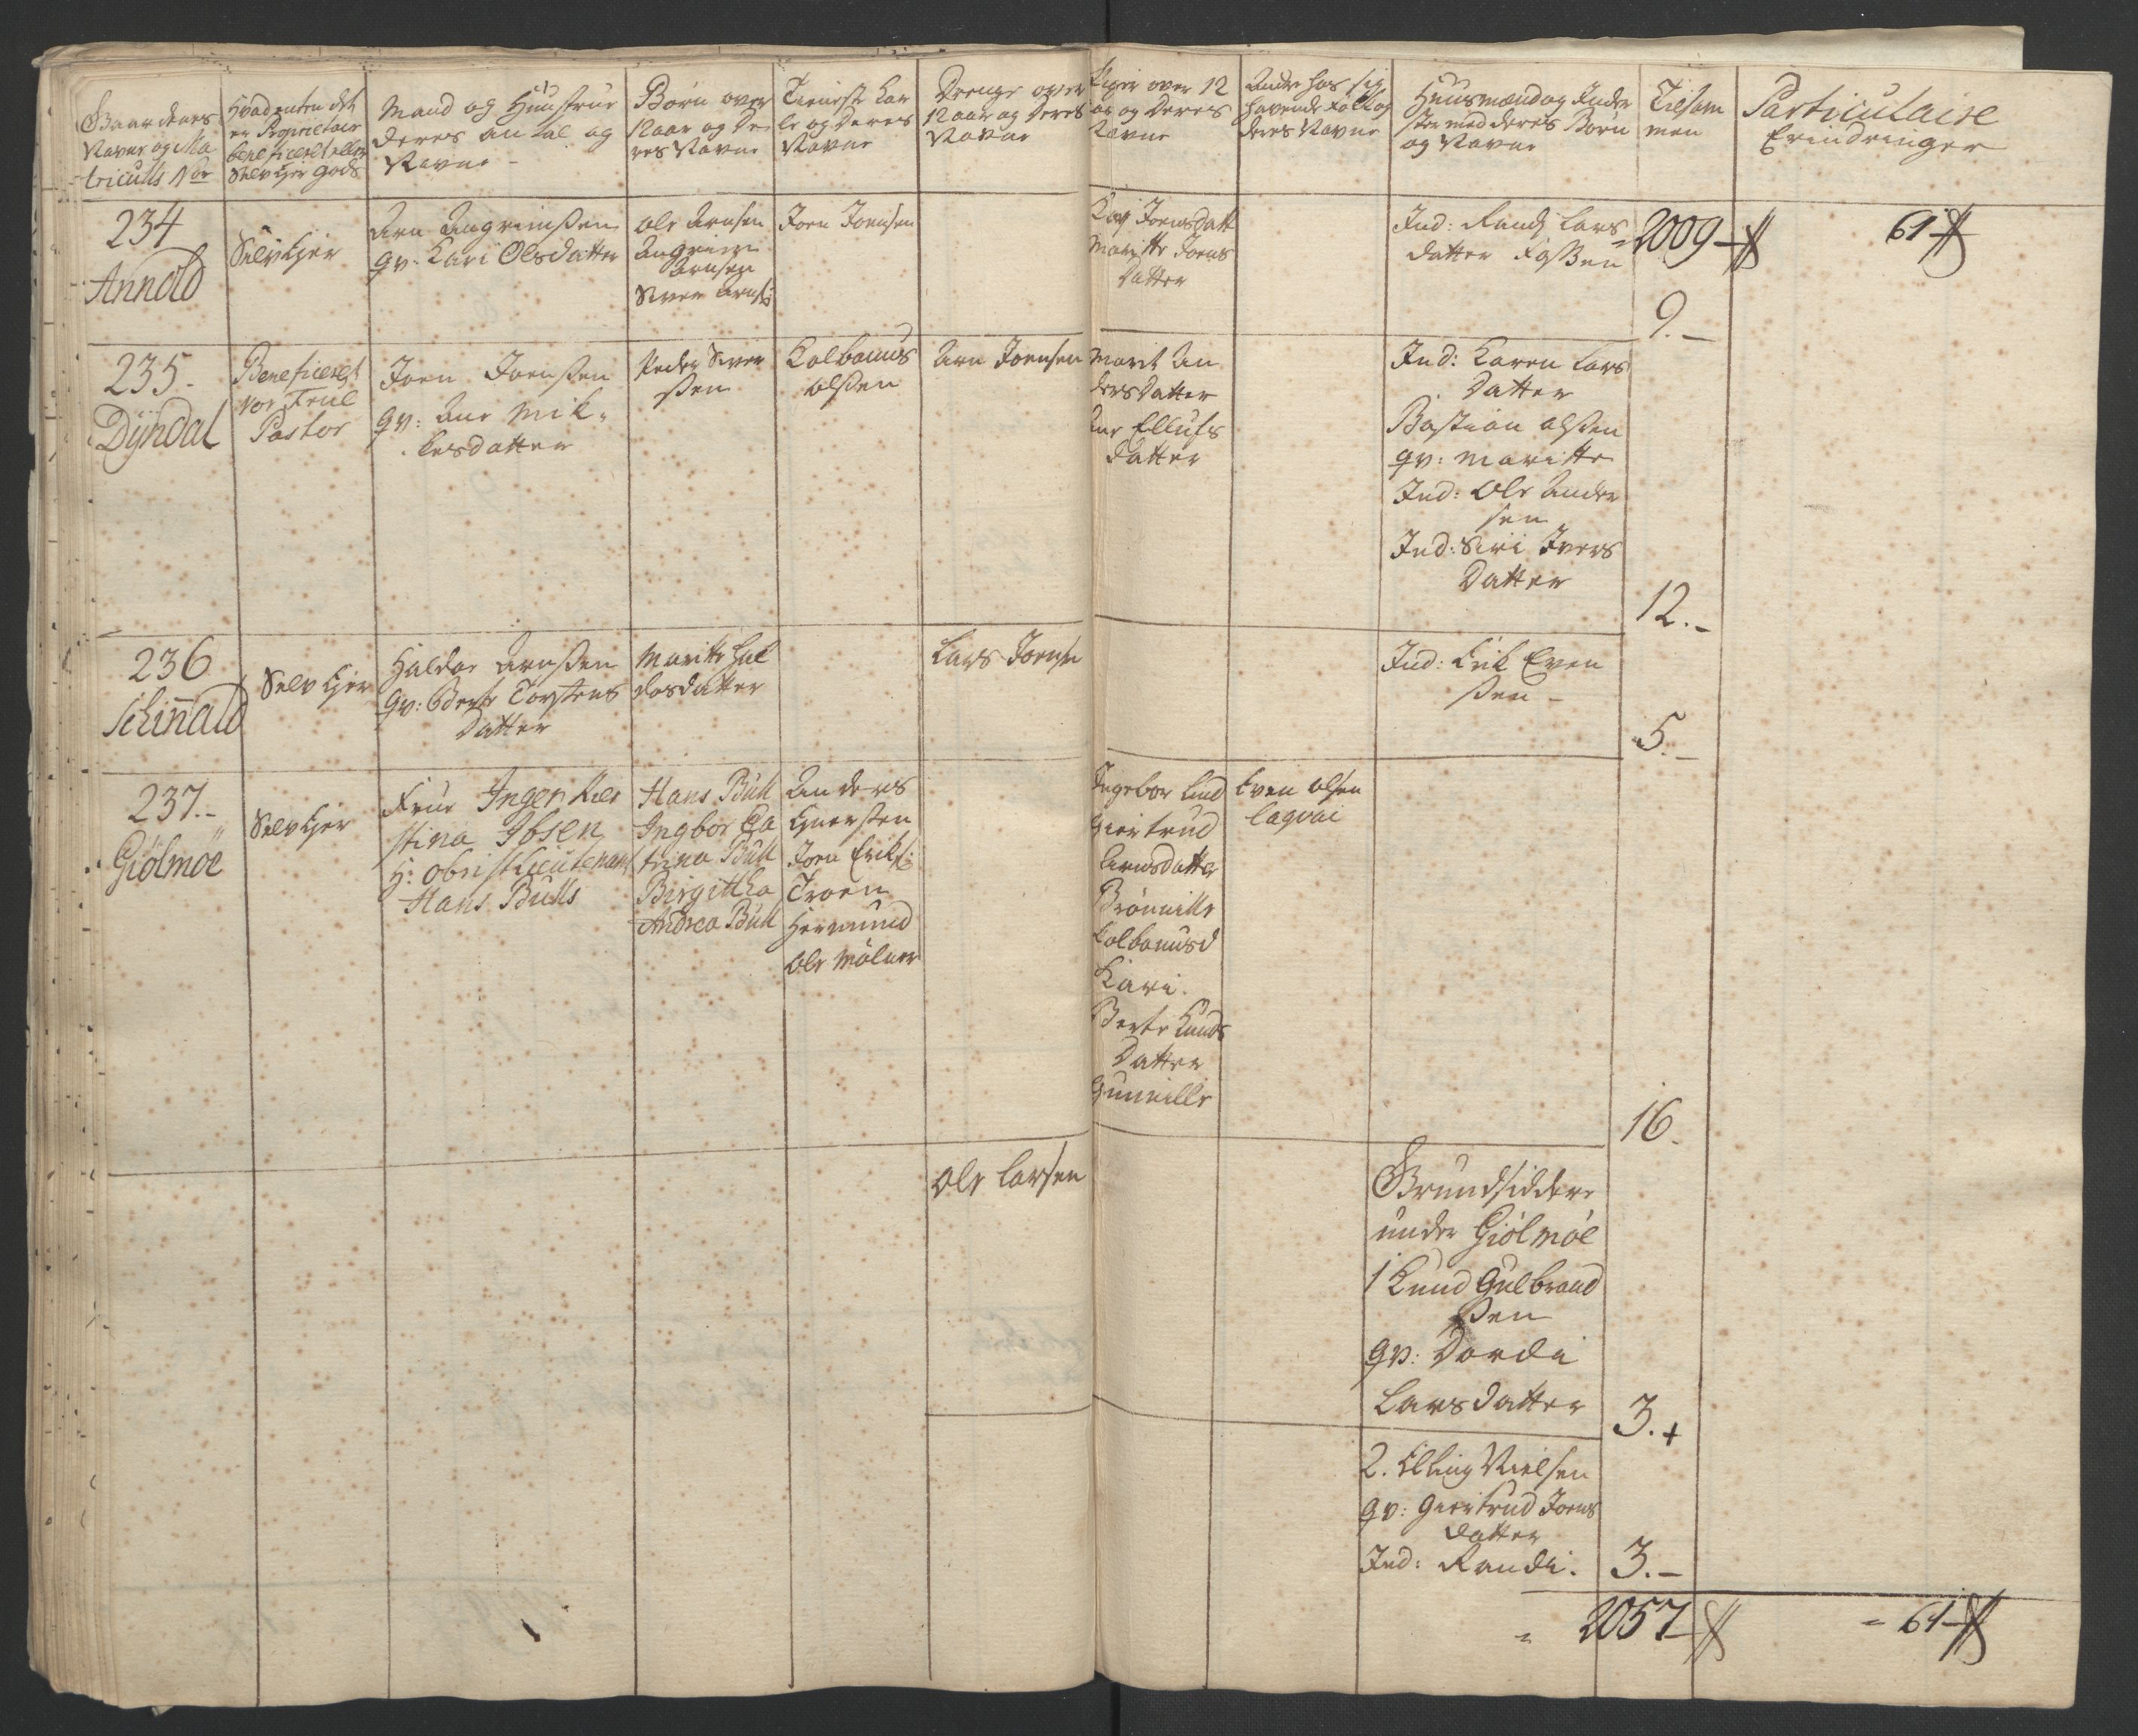 Gaardenes
Navne og Ma
triculs Nr
Hvad enten det
er Proprietair
beneficeret eller
Selv Ejer gods
Mand og Huustrue
deres antal og
Navne
Børn over
12 aar og De
res Navne
Tieniste Kar
le og Deres
Navne
Drenge over
12 aar og Deres
Navne
Piger over 12
aar og Deres
Navne
Andre hos sig
havende Folk og
deres Navne
Huusmænd og Inder
ster med deres Børn
og Navne
Tilsam
men
Particulaire
Erindringer
234
Annold
Selv Ejer
Arn Angrimssen
qv: Kari Olsdatter
Ole Arnsen
Angrim
Arnsen
Siver Arns:
Joen Joensen
Kari Joensdatt
Maritte Joens
datter
Ind: Randi Lars
datter Fossen
2009
61
9.-
235.
Dÿndal
Beneficeret
vor Frue
Pastor
Joen Joenssen
qv: Ane Mik-
kelsdatter
Peder Siver
ssen
Kolbanus
olssen
Arn Joensen
Marit An
dersdatter
Ane Ellufs
datter
Ind: Karen Lars
datter
Bastian olssen
qv: Maritte
Ind: Ole Ander
sen
Ind: Siri Ivers
datter
12.-
236
Schinald
Selv Ejer
Haldor Arnssen
qv: Berte Torstens
datter
Maritte Hal
dorsdatter
Lars Joens
Ind: Erik Even
ssen -
5.-
237.-
Giølmoe
Selv Ejer
Frue Inger Kier
stina Ibsen
H: Obristlieutenant
Hans Bulls
Hans Bull
Ingbor Ca
trina Bull
Birgitha
Andrea Bull
Anders
Gnerssen
Joen Eriks:
Troen
Hermund
Ole Møller
Ingebor Lind
Giertrud
Arnsdatter
Brønnille
Kolbanusd
Kari.
Berte Knuds
datter
Gunnille
Even olsen
Laqvai
16.
Ole Larsen
Grundsiddere
under Giølmøe
1 Knud Gulbrand
ssen
qv: Dordi
Larsdatter
3.+
2. Elling Nielsen
qv: Giertrud Joens
datter
Ind: Randi.
3.-
= 2057
= 61